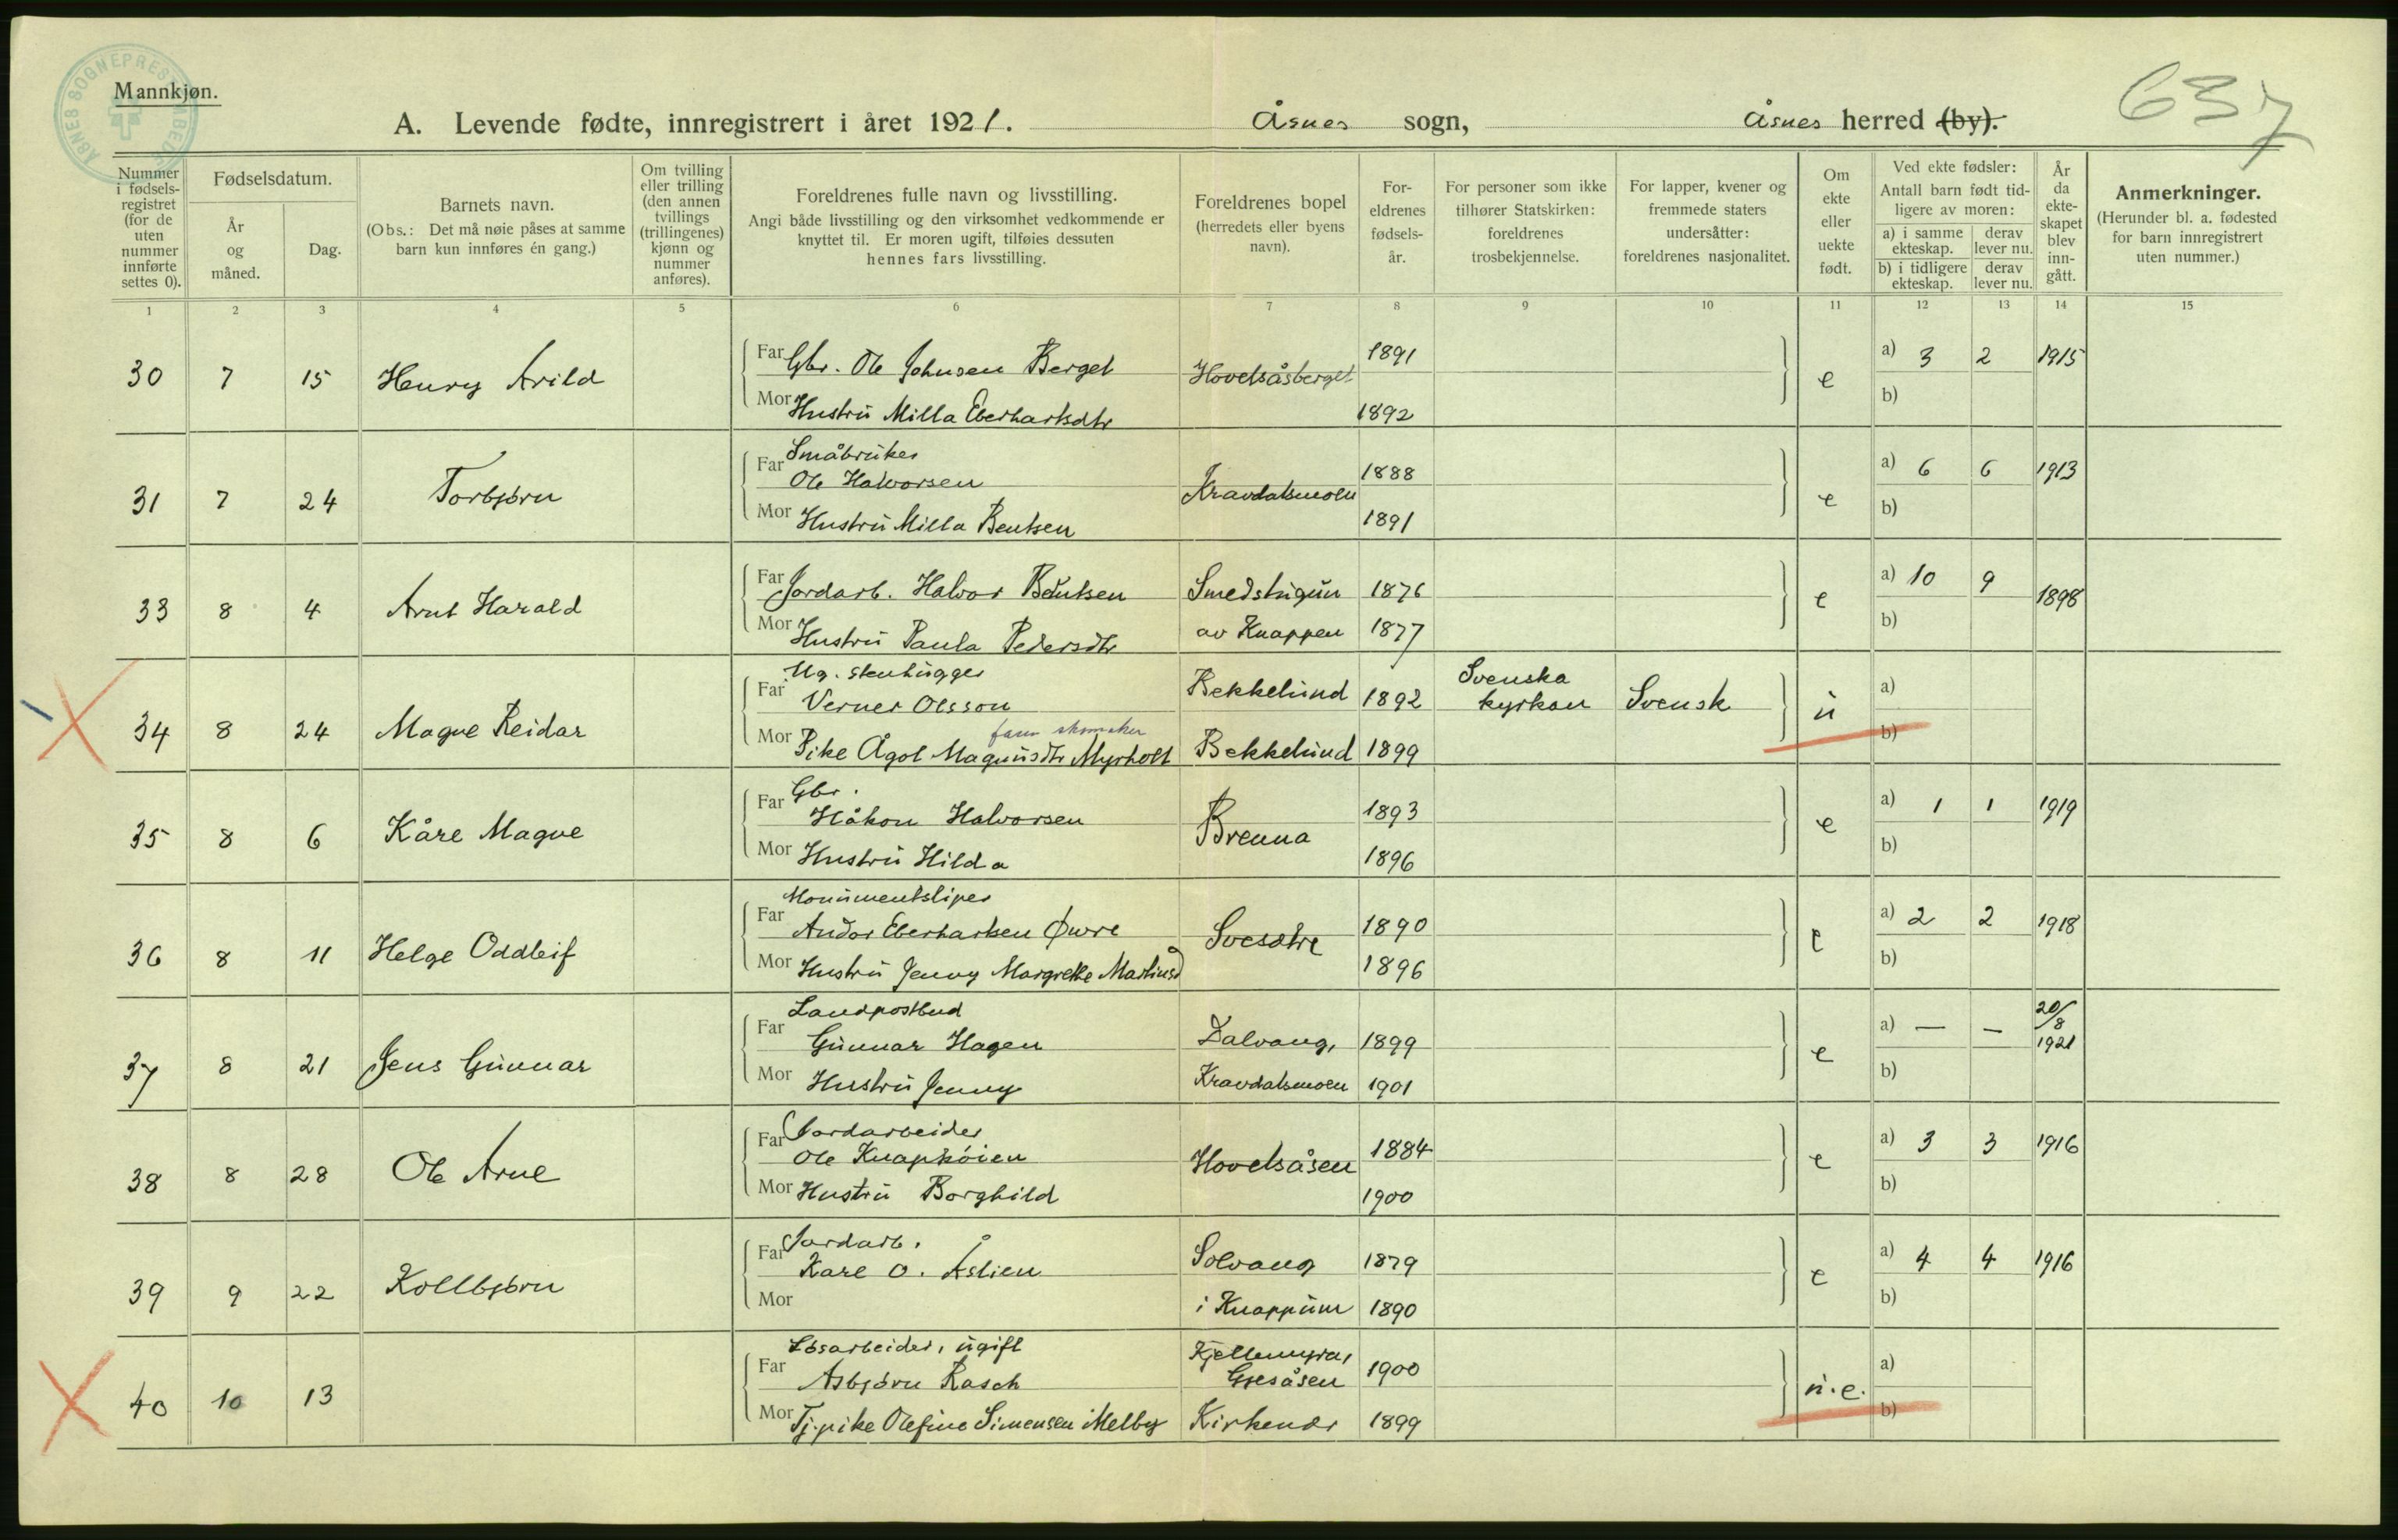 ÅSNES SOGNEPREST
Mannkjøn.
A. Levende fødte, innregistrert i året 1921. Åsnes sogn, Åsnes herred (by).
637
Nummer i fødselsregistret (for de uten nummer innførte settes 0).
Fødselsdatum.
År og måned.
Dag.
Barnets navn.
(Obs.: Det må nøie påses at samme barn kun innføres én gang.)
Om tvilling eller trilling (den annen tvillings (trillingenes) kjønn og nummer anføres).
Foreldrenes fulle navn og livsstilling.
Angi både livsstilling og den virksomhet vedkommende er knyttet til. Er moren ugift, tilføies dessuten hennes fars livsstilling.
Foreldrenes bopel (herredets eller byens navn).
Foreldrenes fødselsår.
For personer som ikke tilhører Statskirken: foreldrenes trosbekjennelse.
For lapper, kvener og fremmede staters undersåtter: foreldrenes nasjonalitet.
Om ekte eller uekte født.
Ved ekte fødsler:
Antall barn født tidligere av moren:
a) i samme ekteskap. derav lever nu.
b) i tidligere ekteskap. derav lever nu.
År da ekteskapet blev inngått.
Anmerkninger.
(Herunder bl. a. fødested for barn innregistrert uten nummer.)
1 2 3 4 5 6 7 8 9 10 11 12 13 14 15
30 7 15 Henry Arild Far Gbr. Ole Johnsen Berget Hovelsåsberget 1891 e a) 3 2 1915
Mor Hustru Milla Eberhartsdtr 1892 b)
Småbruker
31 7 24 Torbjørn Far Ole Halvorsen Kravdalsmoen 1888 e a) 6 6 1913
Mor Hustru Milla Bentsen 1891 b)
33 8 4 Arnt Harald Far Jordarb. Halvor Bentsen Smedstugun 1876 e a) 10 9 1898
Mor Hustru Paula Pedersdtr av Knappen 1877 b)
Ug. stenhugger
34 8 24 Magne Reidar Far Verner Olsson Bekkelund 1892 Svenska kyrkan Svensk u a)
farm skomaker
Mor Pike Ågot Magnusdtr Myrholt Bekkelund 1899 b)
Gbr.
35 8 6 Kåre Magne Far Håkon Halvorsen Brenna 1893 e a) 1 1 1919
Mor Hustru Hilda 1896 b)
Monumentsliper
36 8 11 Helge Oddleif Far Andor Eberhartsen Øwre Svesætre 1890 e a) 2 2 1918
Mor Hustru Jenny Margrethe Martinsd 1896 b)
Landpostbud
37 8 21 Jens Gunnar Far Gunnar Hagen Dalvang, 1899 e a) — — 20/8 1921
Mor Hustru Jenny Kravdalsmoen 1901 b)
Jordarbeider
38 8 28 Ole Arne Far Ole Knaphøien Hovelsåsen 1884 e a) 3 3 1916
Mor Hustru Borghild 1900 b)
Jordarb.
39 9 22 Kollbjørn Far Karl O. Åslien Solvang 1879 e a) 4 4 1916
Mor i Knappum 1890 b)
Løsarbeider, ugift
40 10 13 Far Asbjørn Rasch Kjellmyra, Gjesåsen 1900 u.e. a)
Mor Tj.pike Olefine Simensen Melby Kirkenær 1899 b)